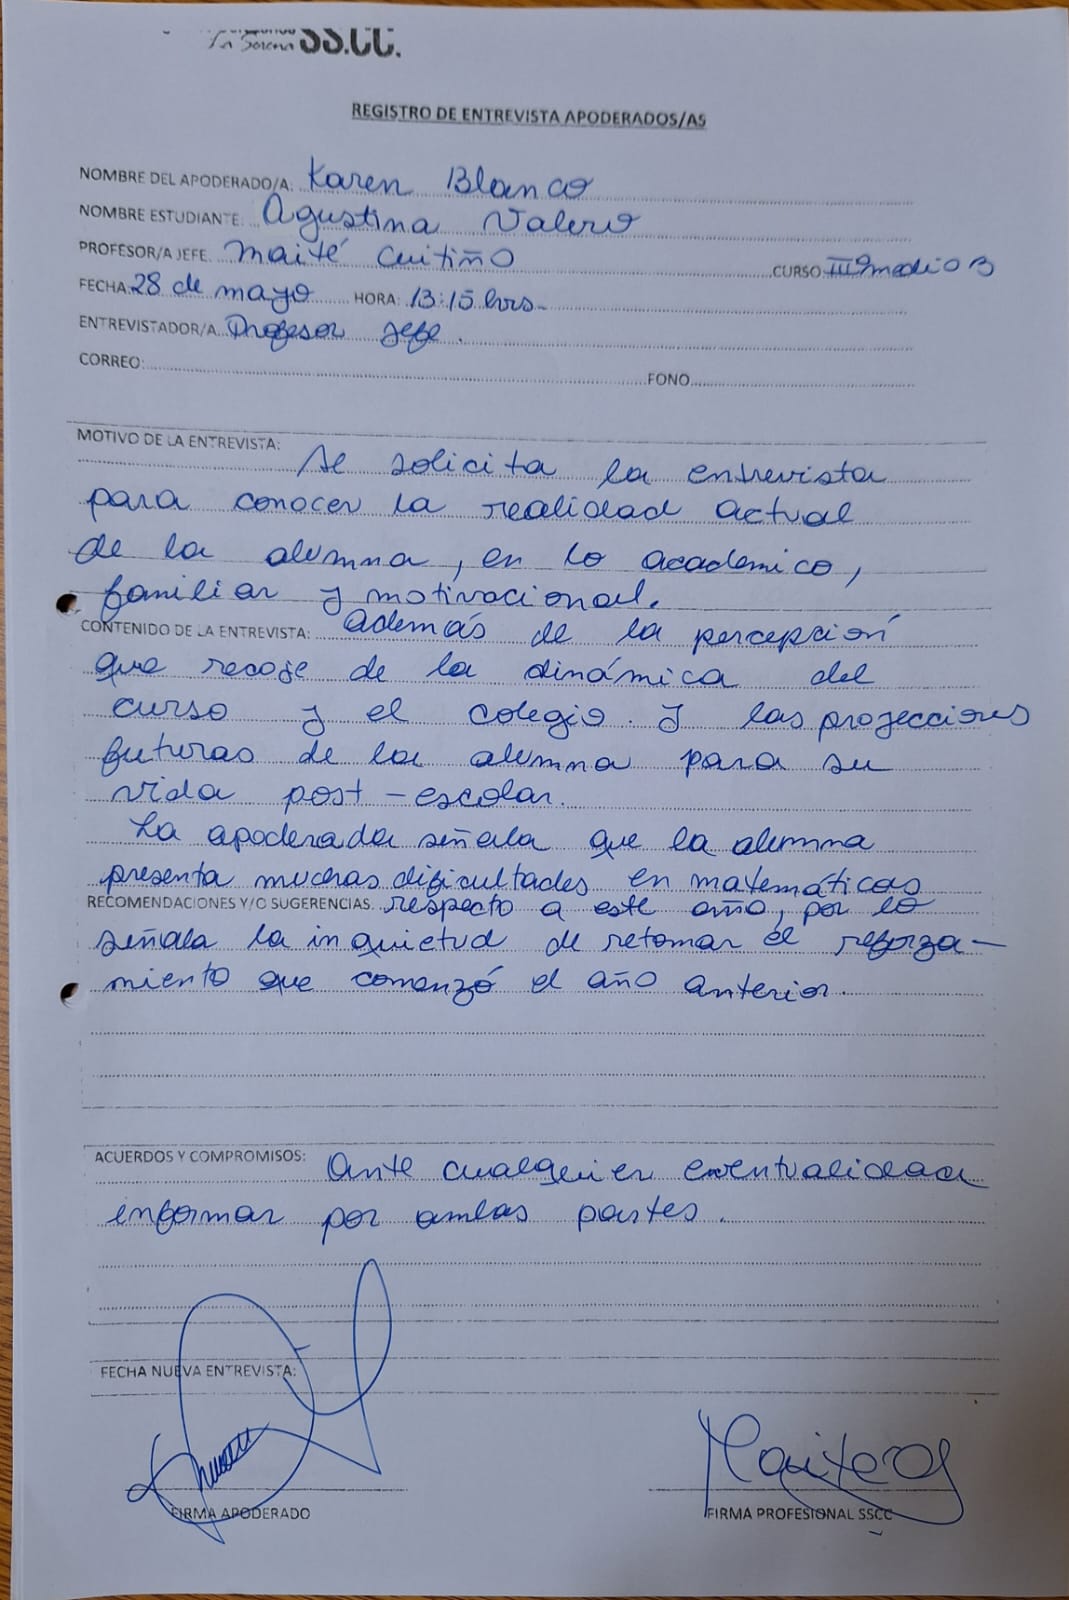 La Serena SS.CC.
REGISTRO DE ENTREVISTA APODERADOS/AS
NOMBRE DEL APODERADO/A: Karen Blanco
NOMBRE ESTUDIANTE: Agustina Valero
PROFESOR/A JEFE: Maité Cuitiño CURSO: IIIº medio B
FECHA: 28 de mayo HORA: 13:15 hrs.
ENTREVISTADOR/A: Profesor Jefe.
CORREO: FONO
MOTIVO DE LA ENTREVISTA: Se solicita la entrevista
para conocer la realidad actual
de la alumna, en lo académico,
familiar y motivacional.
CONTENIDO DE LA ENTREVISTA: además de la percepción
que recoje de la dinámica del
curso y el colegio. Y las proyecciones
futuras de la alumna para su
vida post-escolar.
La apoderada señala que la alumna
presenta muchas dificultades en matemáticas
RECOMENDACIONES Y/O SUGERENCIAS: respecto a este año, por lo
señala la inquietud de retomar el reforza-
miento que comenzó el año anterior.
ACUERDOS Y COMPROMISOS: Ante cualquier eventualidad
informar por ambas partes.
FECHA NUEVA ENTREVISTA:
FIRMA APODERADO FIRMA PROFESIONAL SSCC